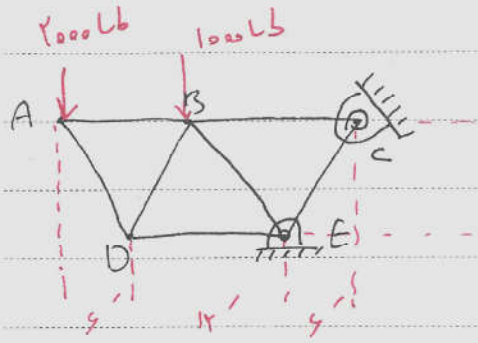 ۲۰۰۰Lb ۱۰۰۰Lb
A B
C
D E
۶′ ۱۲′ ۶′